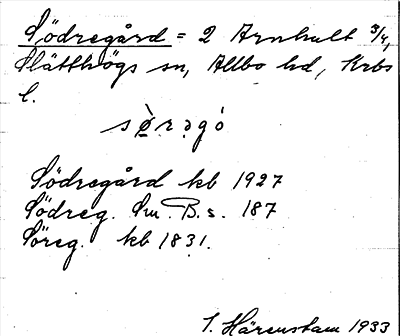 Södregård = 2 Arnhult 3/4,
Slätthögs sn, Allbo hd, Krbs
l.
sø̀rəgó
Södregård kb 1927
Södreg. Sm. B. s. 187
Söreg. kb 1831.
I. Härenstam 1933